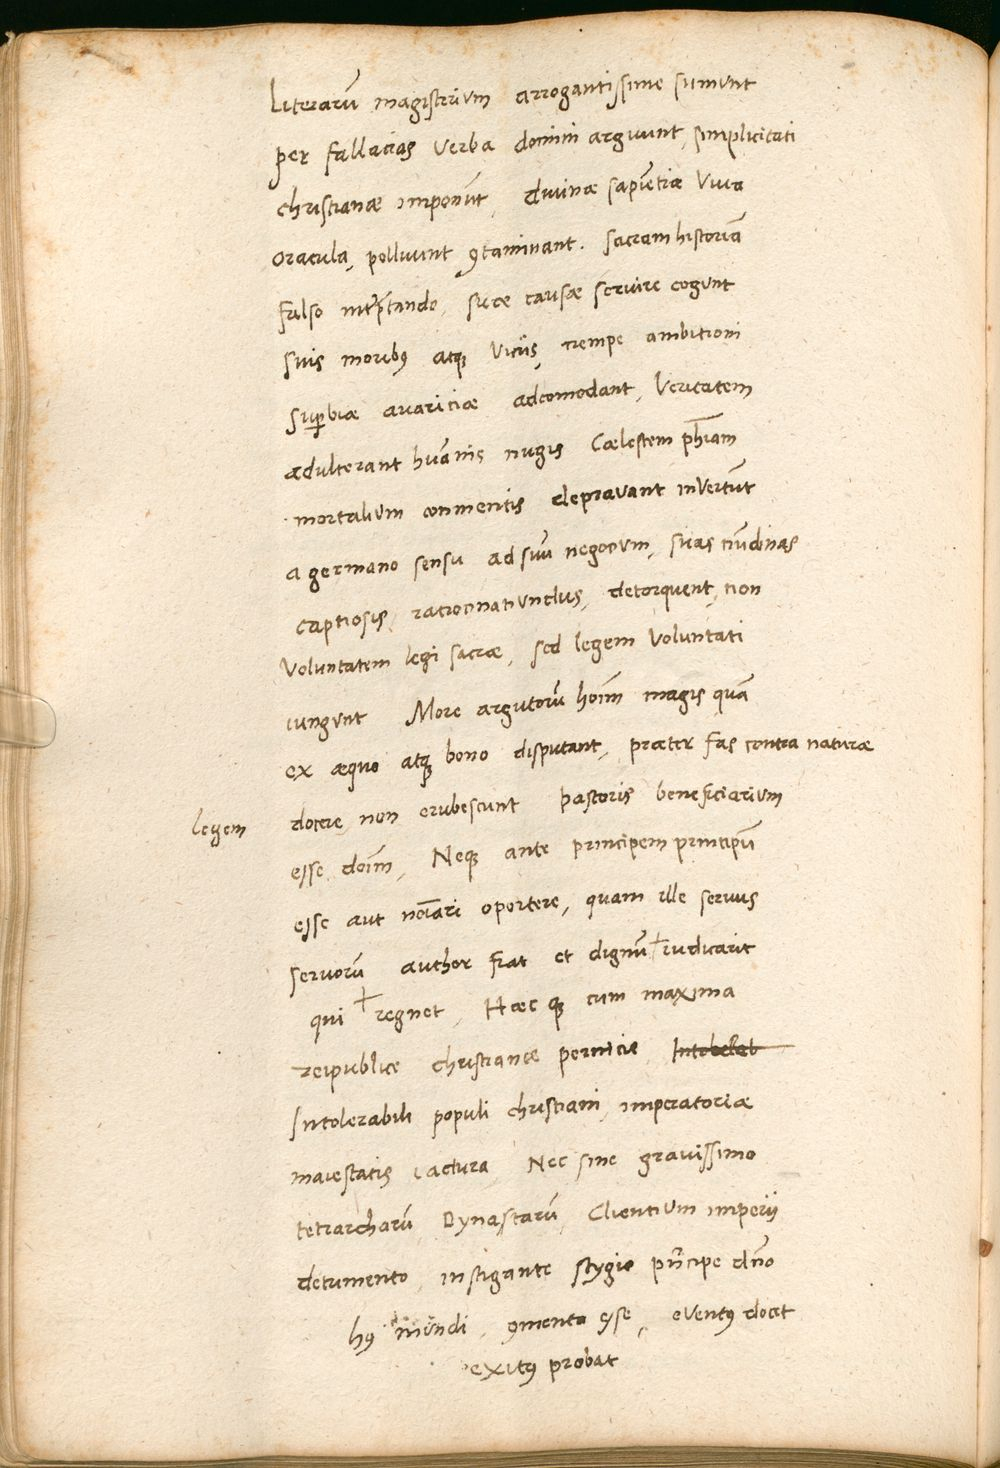 Literarū magisterium arrogantissime sumunt
per fallacias verba domini arguunt, simplicitati
christianæ imponūt, divinæ sapiētiæ viva
oracula, polluunt ꝯtaminant. sacram historiā
falso intp̄tando, suæ causæ servire cogunt
suis moribꝰ atqꝫ viciis, nempe ambitioni
suꝑbiæ avariciæ adcomodant, veritatem
adulterant huānis nugis Cælestem phīam
mortalium conmentis depravant invertūt
a germano sensu ad suū negocium, suas nūdinas
captiosis ratiocinatiunclus, detorquent, non
voluntatem legi sacræ, sed legem voluntati
iungunt More argutorū hoīm magis quā
ex æquo atqꝫ bono disputant, præter fas contra naturæ
legem docere non erubescunt pastoris beneficiarium
esse doīm, Neqꝫ ante principem principū
esse aut noīari oportere, quam ille servus
servorū author fiat et dignū + iudicarit
qui + regnet, Hæc qꝫ cum maxima
reipublicæ christianæ pernicie
Intolerabili populi christiani, imperatoriæ
maiestatis iactura, Nec sine gravissimo
tetrarcharū Dynastarū, Clientium imperii
detrimento, instigante stygio pn̄cipe dn̄o
hꝰ mundi, ꝯmenta esse, eventꝰ docet
exitꝰ probat